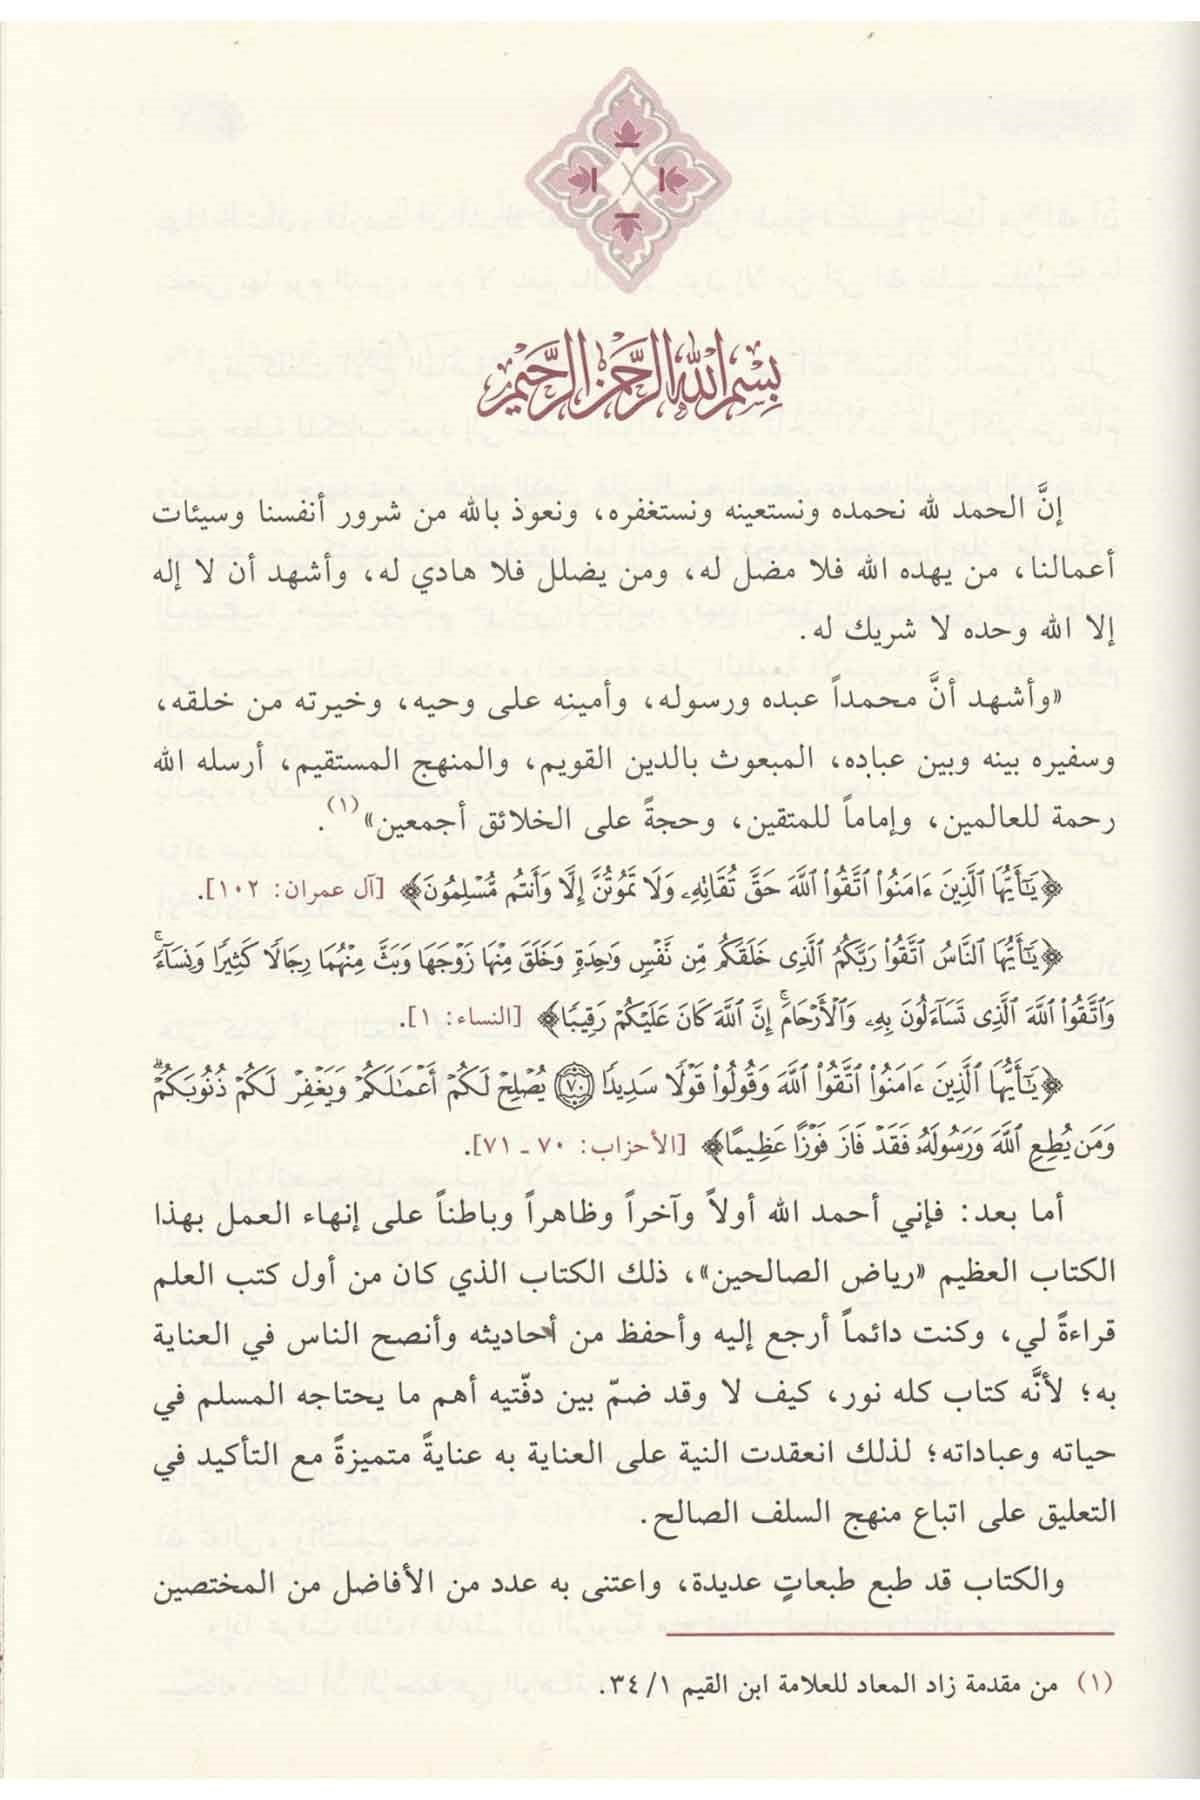 بِسْمِ اللَّهِ الرَّحْمَنِ الرَّحِيمِ
إنَّ الحمد لله نحمده ونستعينه ونستغفره، ونعوذ بالله من شرور أنفسنا وسيئات
أعمالنا، من يهده الله فلا مضل له، ومن يضلل فلا هادي له، وأشهد أن لا إله
إلا الله وحده لا شريك له.
«وأشهد أنَّ محمداً عبده ورسوله، وأمينه على وحيه، وخيرته من خلقه،
وسفيره بينه وبين عباده، المبعوث بالدين القويم، والمنهج المستقيم، أرسله الله
رحمة للعالمين، وإماماً للمتقين، وحجةً على الخلائق أجمعين»(١).
﴿يَٰٓأَيُّهَا ٱلَّذِينَ ءَامَنُوا۟ ٱتَّقُوا۟ ٱللَّهَ حَقَّ تُقَاتِهِۦ وَلَا تَمُوتُنَّ إِلَّا وَأَنتُم مُّسْلِمُونَ﴾ [آل عمران: ١٠٢].
﴿يَٰٓأَيُّهَا ٱلنَّاسُ ٱتَّقُوا۟ رَبَّكُمُ ٱلَّذِى خَلَقَكُم مِّن نَّفْسٍ وَٰحِدَةٍ وَخَلَقَ مِنْهَا زَوْجَهَا وَبَثَّ مِنْهُمَا رِجَالًا كَثِيرًا وَنِسَآءً ۚ
وَٱتَّقُوا۟ ٱللَّهَ ٱلَّذِى تَسَآءَلُونَ بِهِۦ وَٱلْأَرْحَامَ ۚ إِنَّ ٱللَّهَ كَانَ عَلَيْكُمْ رَقِيبًا﴾ [النساء: ١].
﴿يَٰٓأَيُّهَا ٱلَّذِينَ ءَامَنُوا۟ ٱتَّقُوا۟ ٱللَّهَ وَقُولُوا۟ قَوْلًا سَدِيدًا ٧٠ يُصْلِحْ لَكُمْ أَعْمَٰلَكُمْ وَيَغْفِرْ لَكُمْ ذُنُوبَكُمْ ۗ
وَمَن يُطِعِ ٱللَّهَ وَرَسُولَهُۥ فَقَدْ فَازَ فَوْزًا عَظِيمًا﴾ [الأحزاب: ٧٠ ـ ٧١].
أما بعد: فإني أحمد الله أولاً وآخراً وظاهراً وباطناً على إنهاء العمل بهذا
الكتاب العظيم «رياض الصالحين»، ذلك الكتاب الذي كان من أول كتب العلم
قراءةً لي، وكنت دائماً أرجع إليه وأحفظ من أحاديثه وأنصح الناس في العناية
به؛ لأنَّه كتاب كله نور، كيف لا وقد ضمّ بين دفّتيه أهم ما يحتاجه المسلم في
حياته وعباداته؛ لذلك انعقدت النية على العناية به عنايةً متميزةً مع التأكيد في
التعليق على اتباع منهج السلف الصالح.
والكتاب قد طبع طبعاتٍ عديدة، واعتنى به عدد من الأفاضل من المختصين
(١) من مقدمة زاد المعاد للعلامة ابن القيم ٣٤/١.